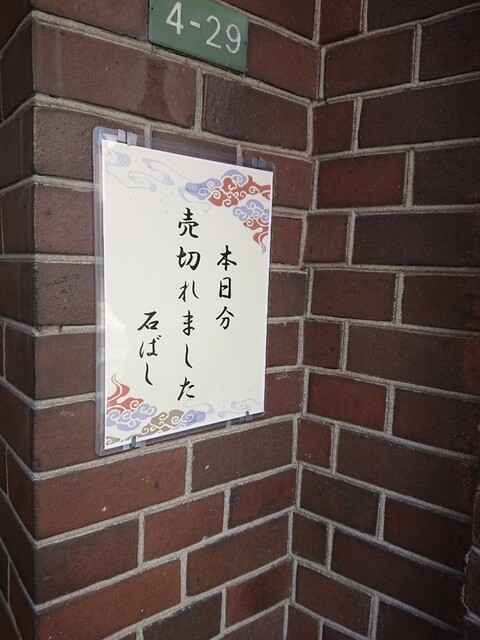 4-29
本日分
売切れました
石ばし